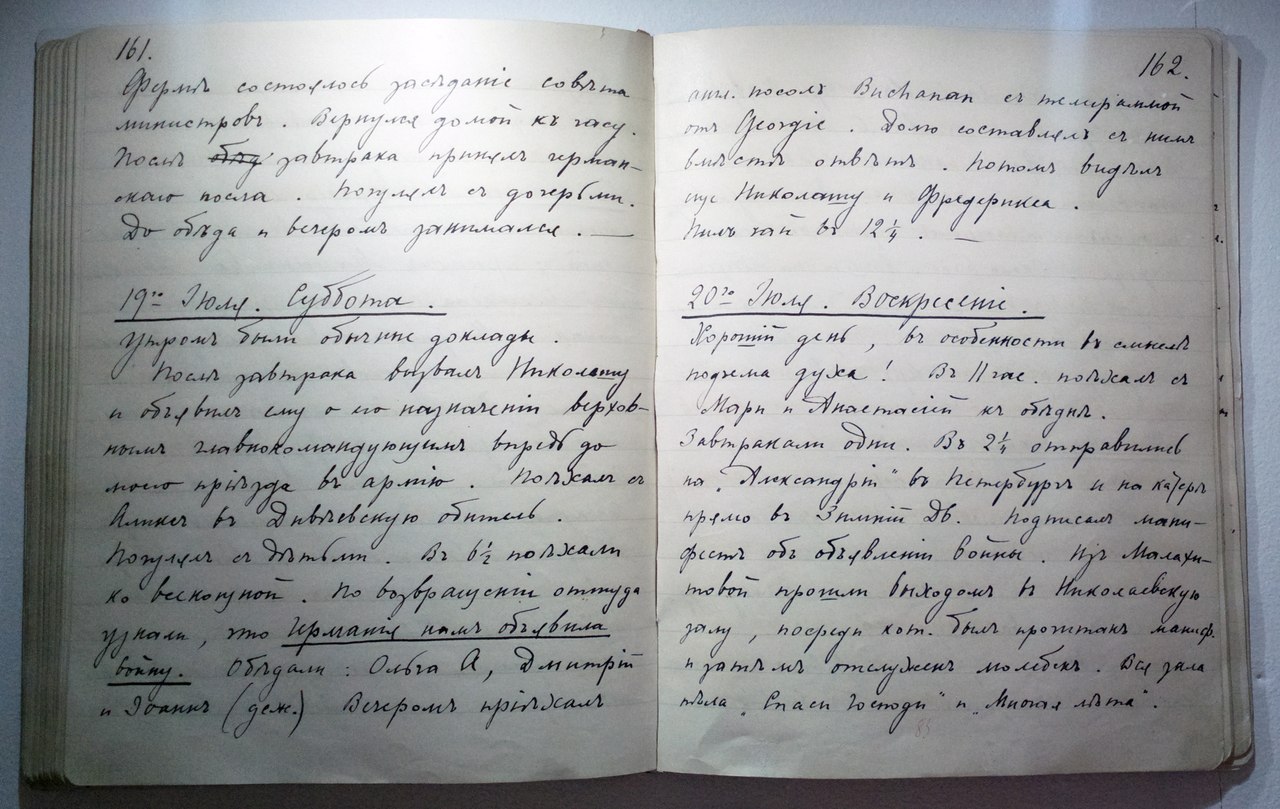 161.
Фермѣ состоялось засѣданіе совѣта
министровъ. Вернулся домой къ часу.
Послѣ обѣд завтрака принялъ герман-
скаго посла. Погулялъ съ дочерьми.
До обѣда и вечеромъ занимался. —
19го Іюля. Суббота.
Утромъ были обычные доклады.
Послѣ завтрака вызвалъ Николашу
и объявилъ ему о его назначеніи верхов-
нымъ главнокомандующимъ впредь до
моего пріѣзда въ армію. Поѣхалъ съ
Аликсъ въ Дивѣевскую обитель.
Погулялъ съ дѣтьми. Въ 6½ поѣхали
ко всенощной. По возвращеніи оттуда
узнали, что Германія намъ объявила
войну. Обѣдали: Ольга А, Дмитрій
и Іоаннъ (деж.) Вечеромъ пріѣхалъ
162.
англ. посолъ Buchanan съ телеграммой
отъ Georgie. Долго составлялъ съ нимъ
вмѣстѣ отвѣтъ. Потомъ видѣлъ
еще Николашу и Фредерикса.
Пилъ чай въ 12¼. —
20го Іюля. Воскресеніе.
Хорошій день, въ особенности въ смыслѣ
подъема духа! Въ 11 час. поѣхалъ съ
Мари и Анастасіей къ обѣднѣ.
Завтракали одни. Въ 2¼ отправились
на „Александріи" въ Петербургъ и на катерѣ
прямо въ Зимній Дв. Подписалъ мани-
фестъ объ объявленіи войны. Изъ Малахи-
товой прошли выходомъ въ Николаевскую
залу, посреди кот. былъ прочтанъ маниф.
и затѣмъ отслуженъ молебенъ. Вся зала
пѣла „Спаси Господи" и „Многая лѣта".
83